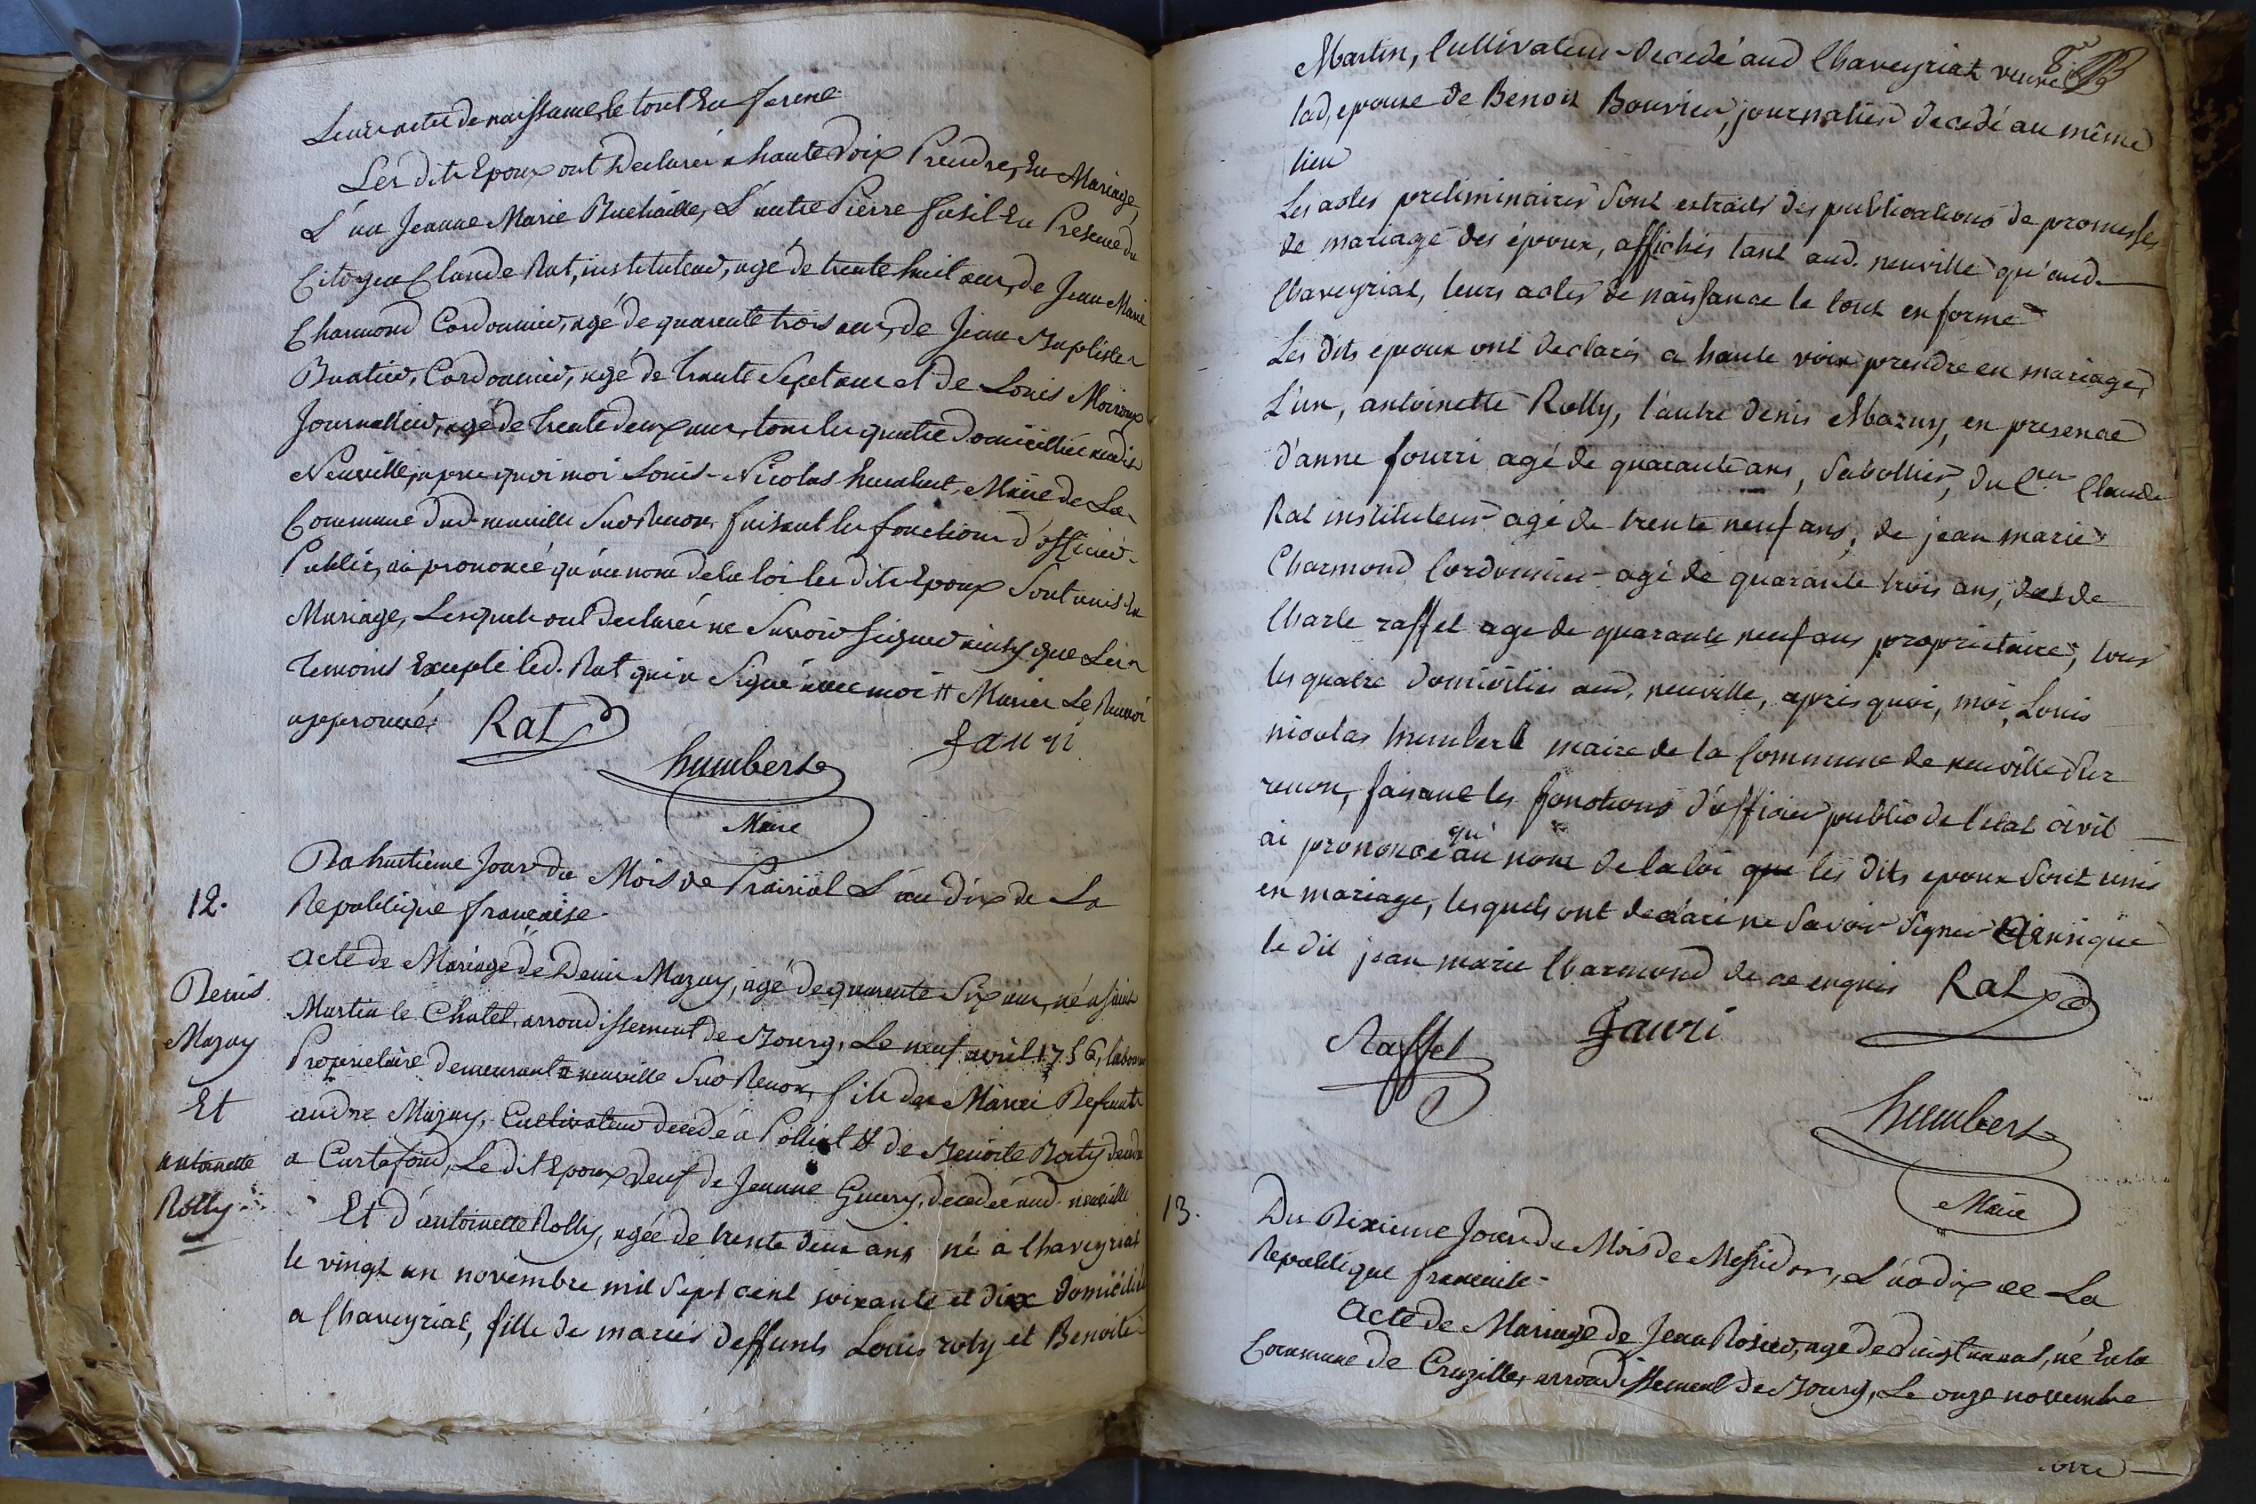 Leurs actes de naissance, le tout En forme
Les dits Epoux ont Declarés a haute voix Prendre, En Mariage,
L'un Jeanne Marie Buchaille, L'autre Pierre fusil En Presence du
Citoyen Claude Rat, instituteur, agé de trente huit ans, de Jean Marie
Charmond Cordonnier, agé de quarente trois ans, de Jean Baptiste
Buatier, Cordonnier, agé de trente Sept ans et de Louis Moiroux
Journallier, agé de trente deux ans, tous les quatre Domicilliés audit
Neuville, apres quoi moi Louis-Nicolas humbert, Maire de La
Commune dud. neuville Sur Renon, faisant les fonctions d'officier
Public, ai prononcé qu'au nom de la loi les dits Epoux Sont unis En
Mariage, Lesquels ont Declarés ne Savoir Signer ainsy que Les
Temoins Excepté led. Rat qui a Signé avec moi # Mariés Le Renvoi
approuvé.
Rat
fauri
humbert
Maire
12.
Du huitième Jour du Mois de Prairial L'an dix de La
Republique française.
Denis
Mazuy
Et
antoinette
Rolly
acte de Mariage de Denis Mazuy, agé de quarente Six ans, né a Saint
Martin le Chatel, arrondissement de Bourg, Le neuf avril 1756, laboureur
Proprietaire demeurant a neuville Sur Renon, fils des Mariés Defunts
andré Mazuy, Cultivateur decedé a Polliat & de Benoite Roty decedée
a Curtafond, Le dit Epoux veuf de Jeanne Guery, decedée aud. neuville
Et d'antoinette Rolly, agée de trente deux ans né à Chaveyriat
le vingt un novembre mil sept cent soixante et dix domiciliée
a Chaveyriat, fille de mariés deffunts Louis roty et Benoite
8e
Martin, Cultivateur decedé aud Chaveyriat veuve
lad, epouse de Benoit Bouvier, journalier decedé au même
lieu
Les actes preliminaires sont extraits des publications de promesses
de mariage des époux, affichés tant aud. neuville qu'aud.
Chaveyriat, leurs actes de naissance le tout en forme
Les dits epoux ont declarés a haute voix prendre en mariage,
L'un, antoinette Rolly, l'autre denis Mazuy, en presence
d'anne fourri agé de quarante ans, Sabottier, du Cen Claude
Rat instituteur agé de trente neuf ans, de jean marie
Charmond Cordonnier agé de quarante trois ans, et de
Charle raffet age de quarante neuf ans proprietaire, tous
les quatre domiciliés aud. neuville, après quoi, moi, Louis
nicolas humbert maire de la Commune de neuville Sur
renon, faisant les fonctions d'officier public de l'état civil
ai prononcé qu'au nom de la loi que les dits epoux sont unis
en mariage, lesquels ont declaré ne savoir signer Ainsi que
le dit jean marie Charmond de ce enquis
Rat
Raffet
fauri
humbert
Maire
13.
Du Dixieme Jour du Mois de Messidor, L'an dix de La
Republique française.
acte de Mariage de Jean Rosier, agé de vingt un ans, né En la
Commune de Cruzilles, arrondissement de Bourg, Le onze novembre